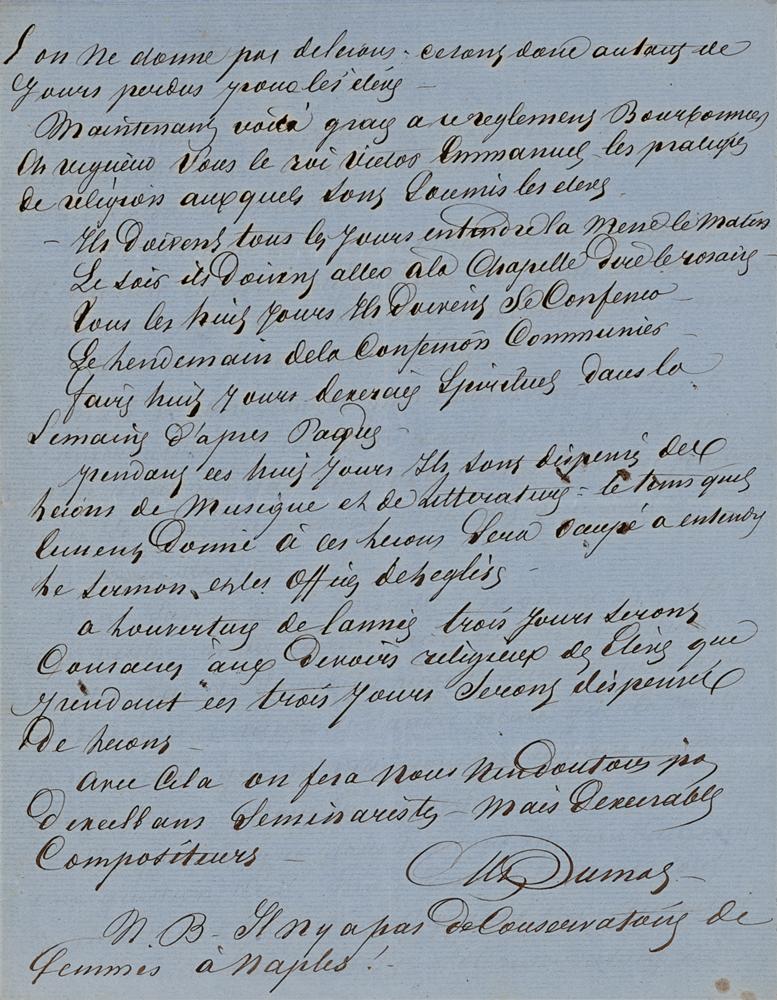 l on ne donne pas de lecons - ce sont donc autant de
jours perdus pour les eleves -
Maintenant voici grace a ce reglement Bourbonnien
en vigueur sous le roi Victor Emmanuel les pratiques
de religion auxquels sont soumis les eleves
- Ils doivent tous les jours entendre la Messe le matin
Le soir ils doivent aller à la Chapelle dire le rosaire -
tous les huit jours Ils doivent se Confesser
Le hendemain de la Confession Communier -
faire huit jours dexercices Spirituels dans la
Semaine d'apres Paques -
pendant ces huit jours Ils sont dispensés des
lecons de Musique et de Litterature = le tems quels
eussent donné à ces lecons sera occupé a entendre
le sermon et les Offices de leglise -
a louverture de lannée trois jours seront
Consacrés aux devoirs religieux des Elèves que
pendant ces trois jours seront dispensés
de lecons -
avec Cela on fera nous nen doutons pas
dexcellents Seminaristes - mais dexecrables
Compositeurs -
Alex Dumas -
N. B - Il ny a pas de Conservatoire de
femmes à Naples !